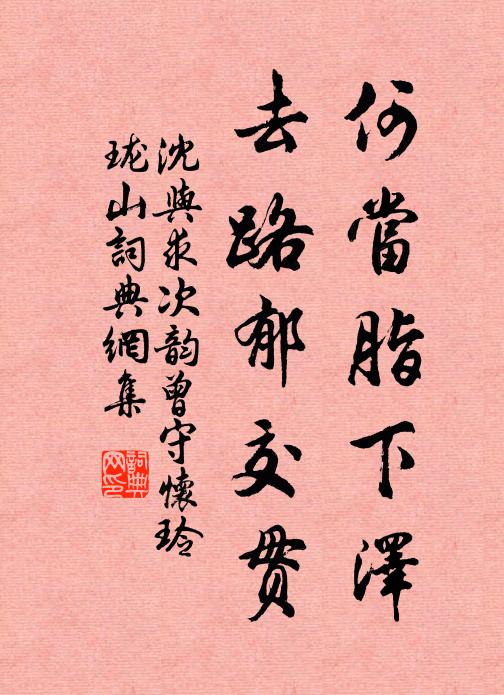 何當脂下澤
去路郁交貫
沈與求次韵曾守懷玲
瓏山詞典網集
詞典
网印